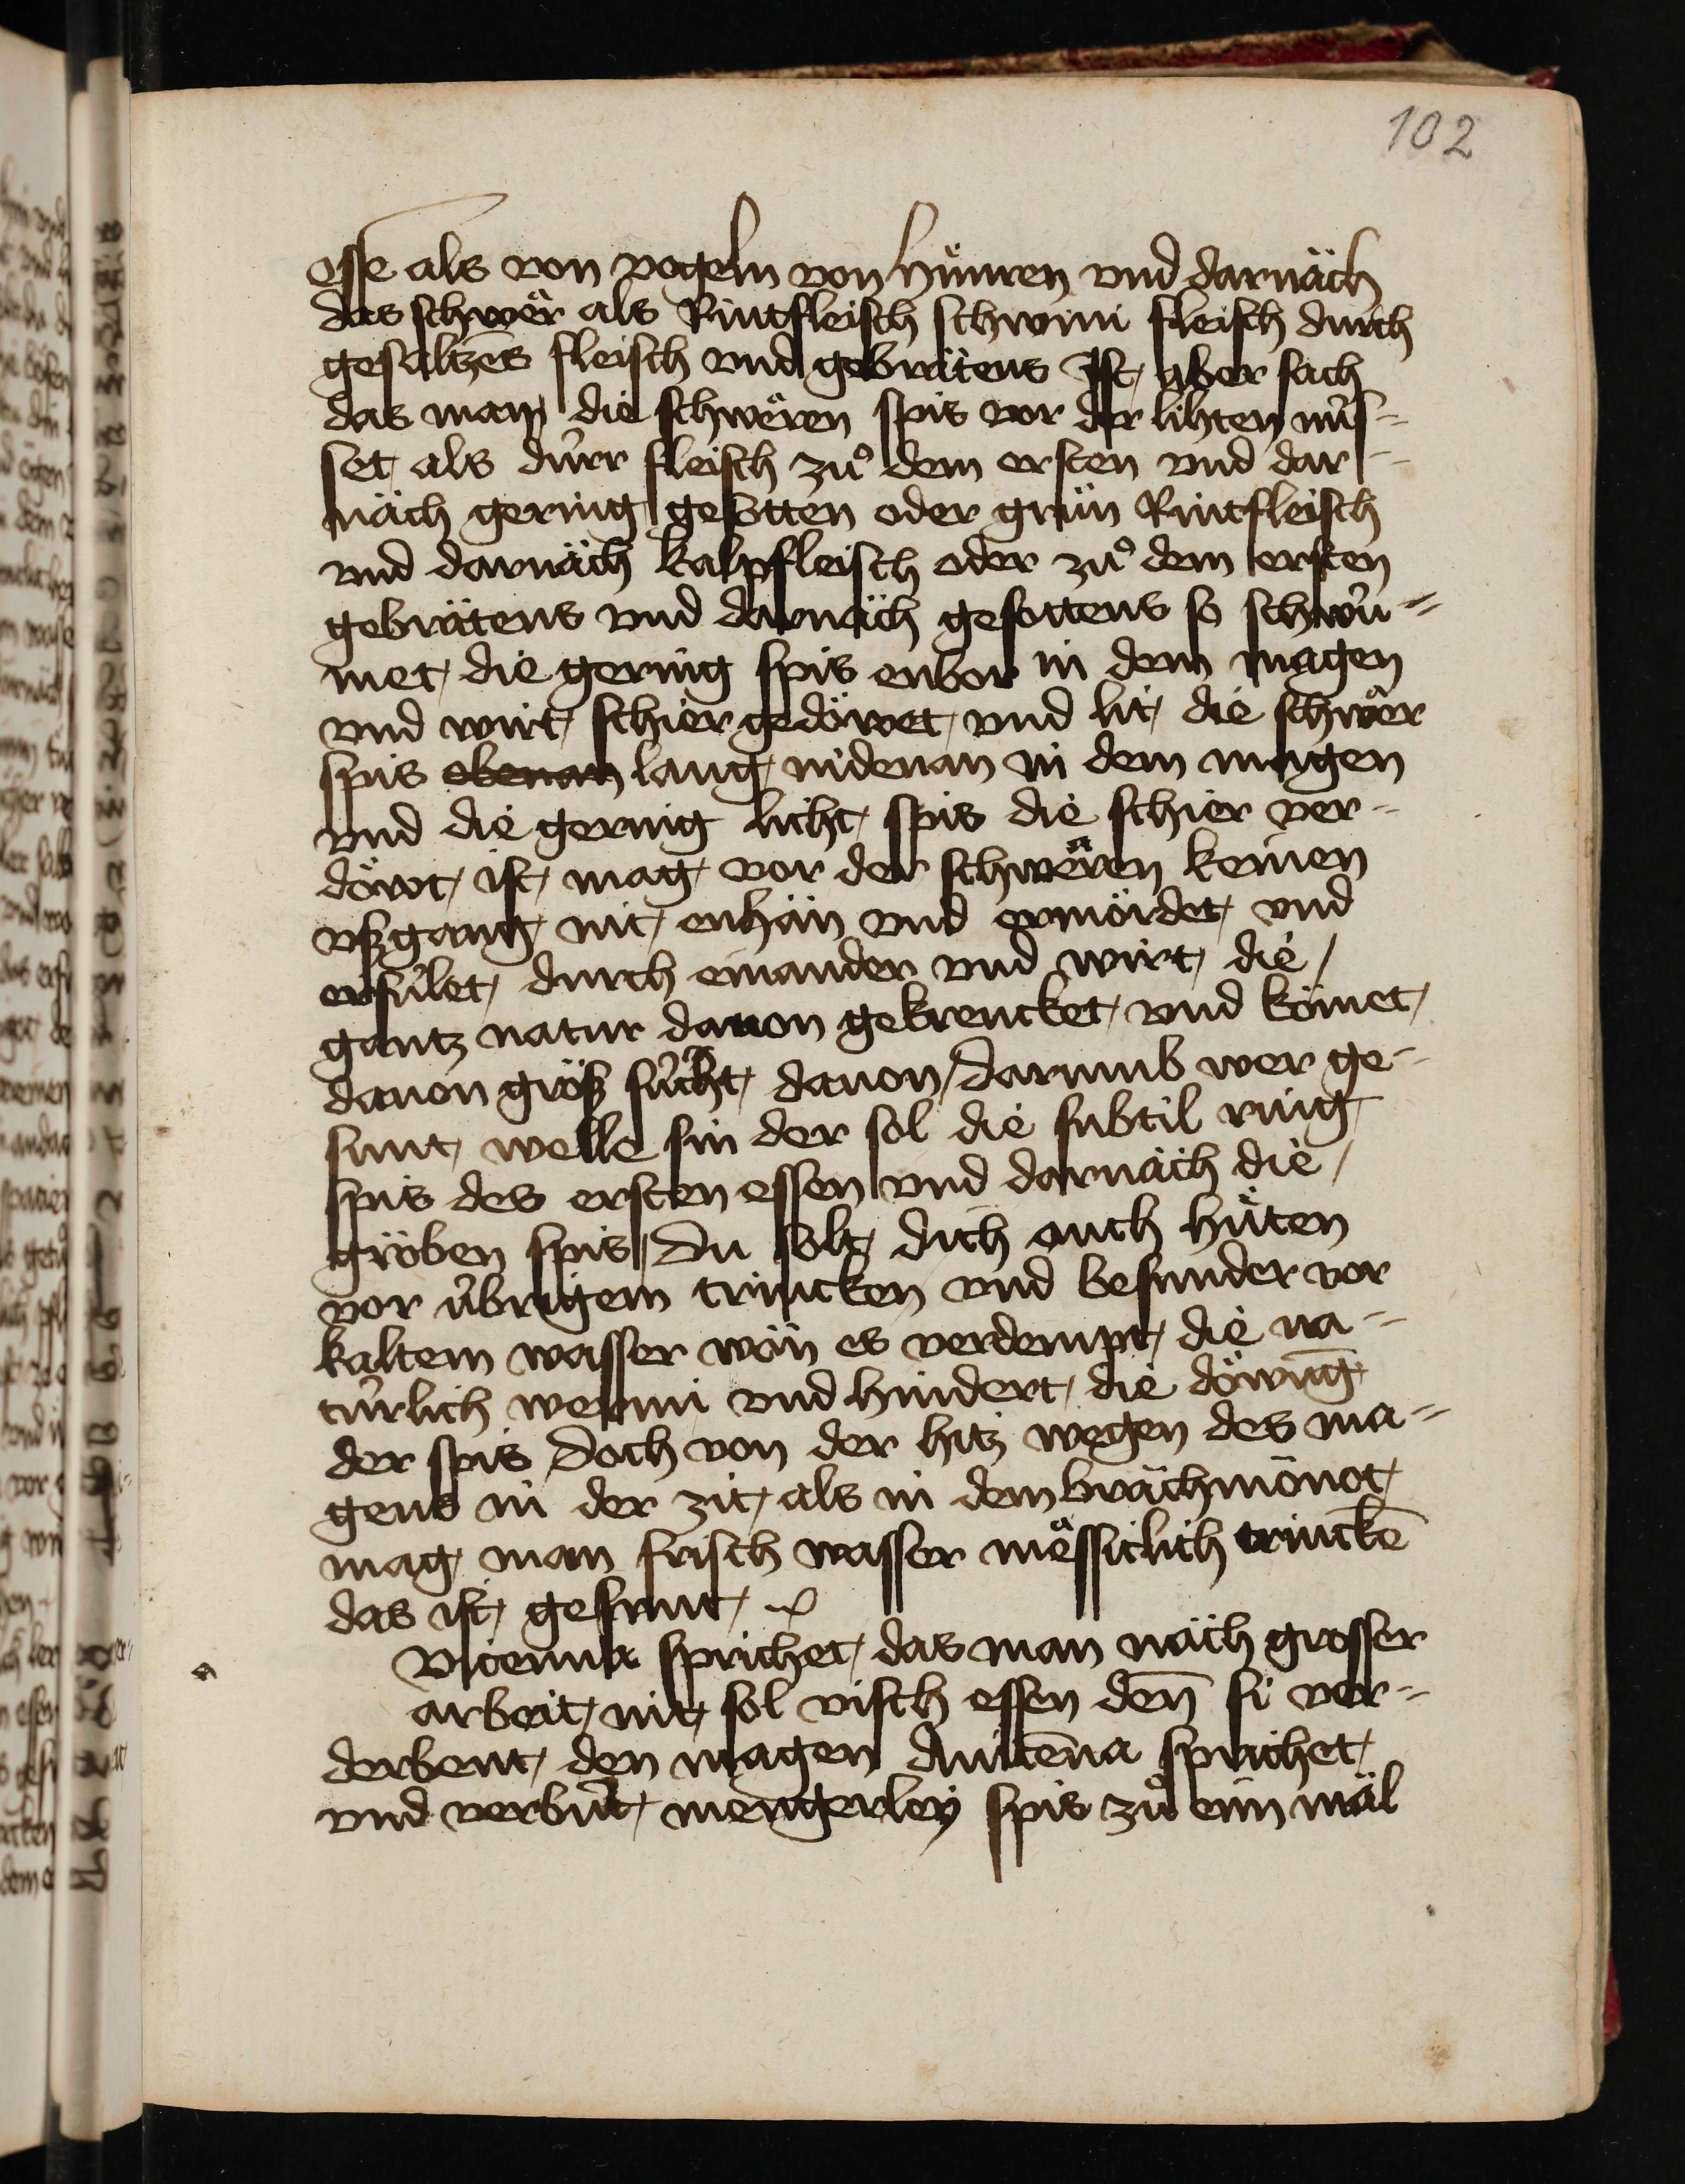 102
esse als von vogeln von hu̍nren vnd darnäch
das schwär als Rintfleisch schwini fleisch durch
gesaltzēs fleisch vnd gebrätens Ist aber sach
das man die schwären spis vor der lihten nu̍s-
set als du̍rr fleisch zuͦ dem ersten vnd dar-
näch gering gesotten oder grün Rintfleisch
vnd darnäch kalpfleisch oder zuͦ dem ersten
gebrätens vnd darnäch gesottens so schwu̍-
met die gering spis enbor in dem magen
vnd wirt schier gedöwet vnd lit die schwär
spis obenan lang nidenan in dem magen
vnd die gering licht spis die schier ver-
döwt ist mag vor der schwären keinen
vßgang nit enhän vnd ermördet vnd
erfu̍let durch einander vnd wirt die
gantz natur dauon gekrencket vnd kömet
dauon größ su̍cht dauon darumb wer ge-
sunt welle sin der sol die subtil ring
spis des ersten essen vnd darnäch die
gröben spis Du solt dich ouch hüten
vor u̍brigem trincken vnd besunder vor
kaltem wasser wän es verdempt die na-
tu̍rlich wermi vnd hindert die döwūg
der spis Doch von der hitz wegen des ma-
gens in der zit als in dem brächmönot
mag man frisch wasser mässiclich trinckē
das ist gesunt
a
Vicenna sprichet das man näch grosser
arbeit nit sol visch essen den̄ si ver-
derbent den magen Auicēna sprichet
vnd verbu̍t mengerley spis zuͦ eim mäl